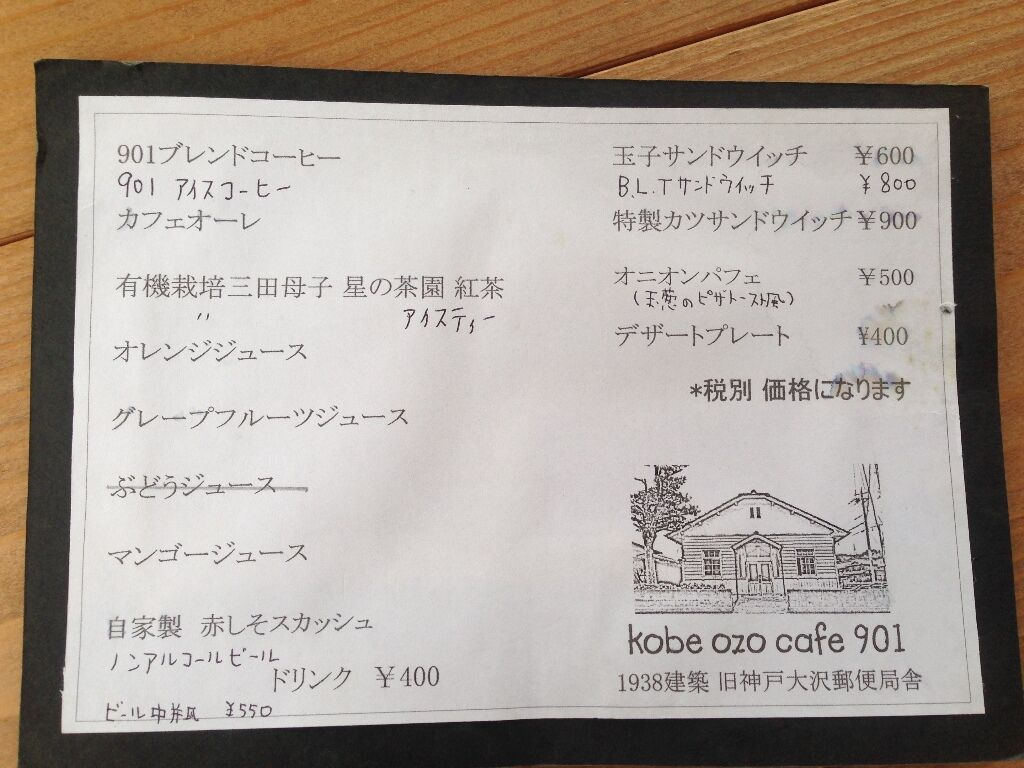 901ブレンドコーヒー
901 アイスコーヒー
カフェオーレ
有機栽培三田母子 星の茶園 紅茶
〃 アイスティー
オレンジジュース
グレープフルーツジュース
ぶどうジュース
マンゴージュース
自家製 赤しそスカッシュ
ノンアルコールビール
ドリンク ￥400
ビール中瓶 ￥550
玉子サンドウイッチ ￥600
B.L.Tサンドウィッチ ￥800
特製カツサンドウイッチ ￥900
オニオンパフェ ￥500
(玉葱のピザトースト風)
デザートプレート ¥400
*税別 価格になります
kobe ozo cafe 901
1938建築 旧神戸大沢郵便局舎